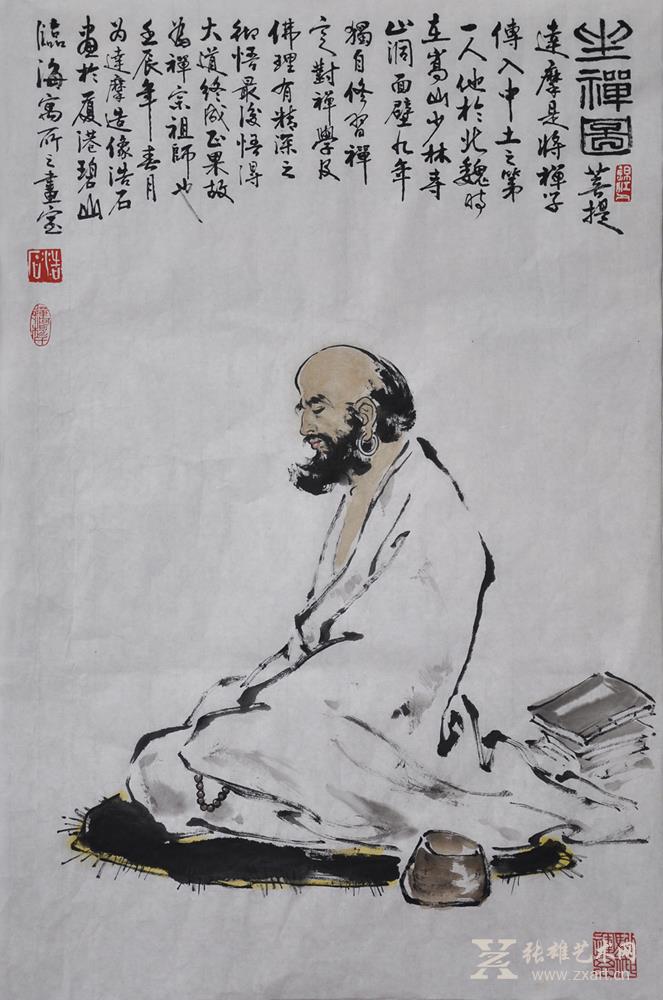 坐禪圖
菩提
達摩是將禪學
傳入中土之第
一人他於北魏時
在嵩山少林寺
山洞面壁九年
獨自修習禪
定對禪學及
佛理有精深之
領悟最後悟得
大道終成正果故
為禪宗祖師也
壬辰年春月
为達摩造像浩石
畫於厦港碧山
臨海寓所之畫室
浩石
张雄艺术网
www.zxart.cn